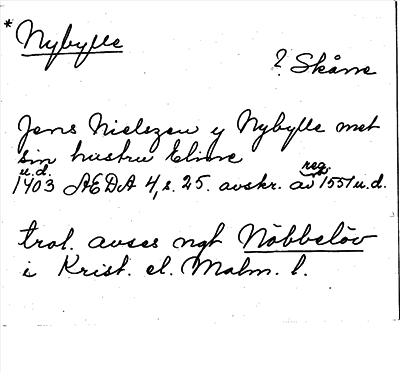 * Nybylle
? Skåne
Jens Nielszen y Nybylle met
sin hustru Eline
u.d.
1403 ÆDA 4, s. 25. avskr. av reg. 1551 u.d.
trol. avses ngt Nöbbelöv
i Krist. el. Malm. l.